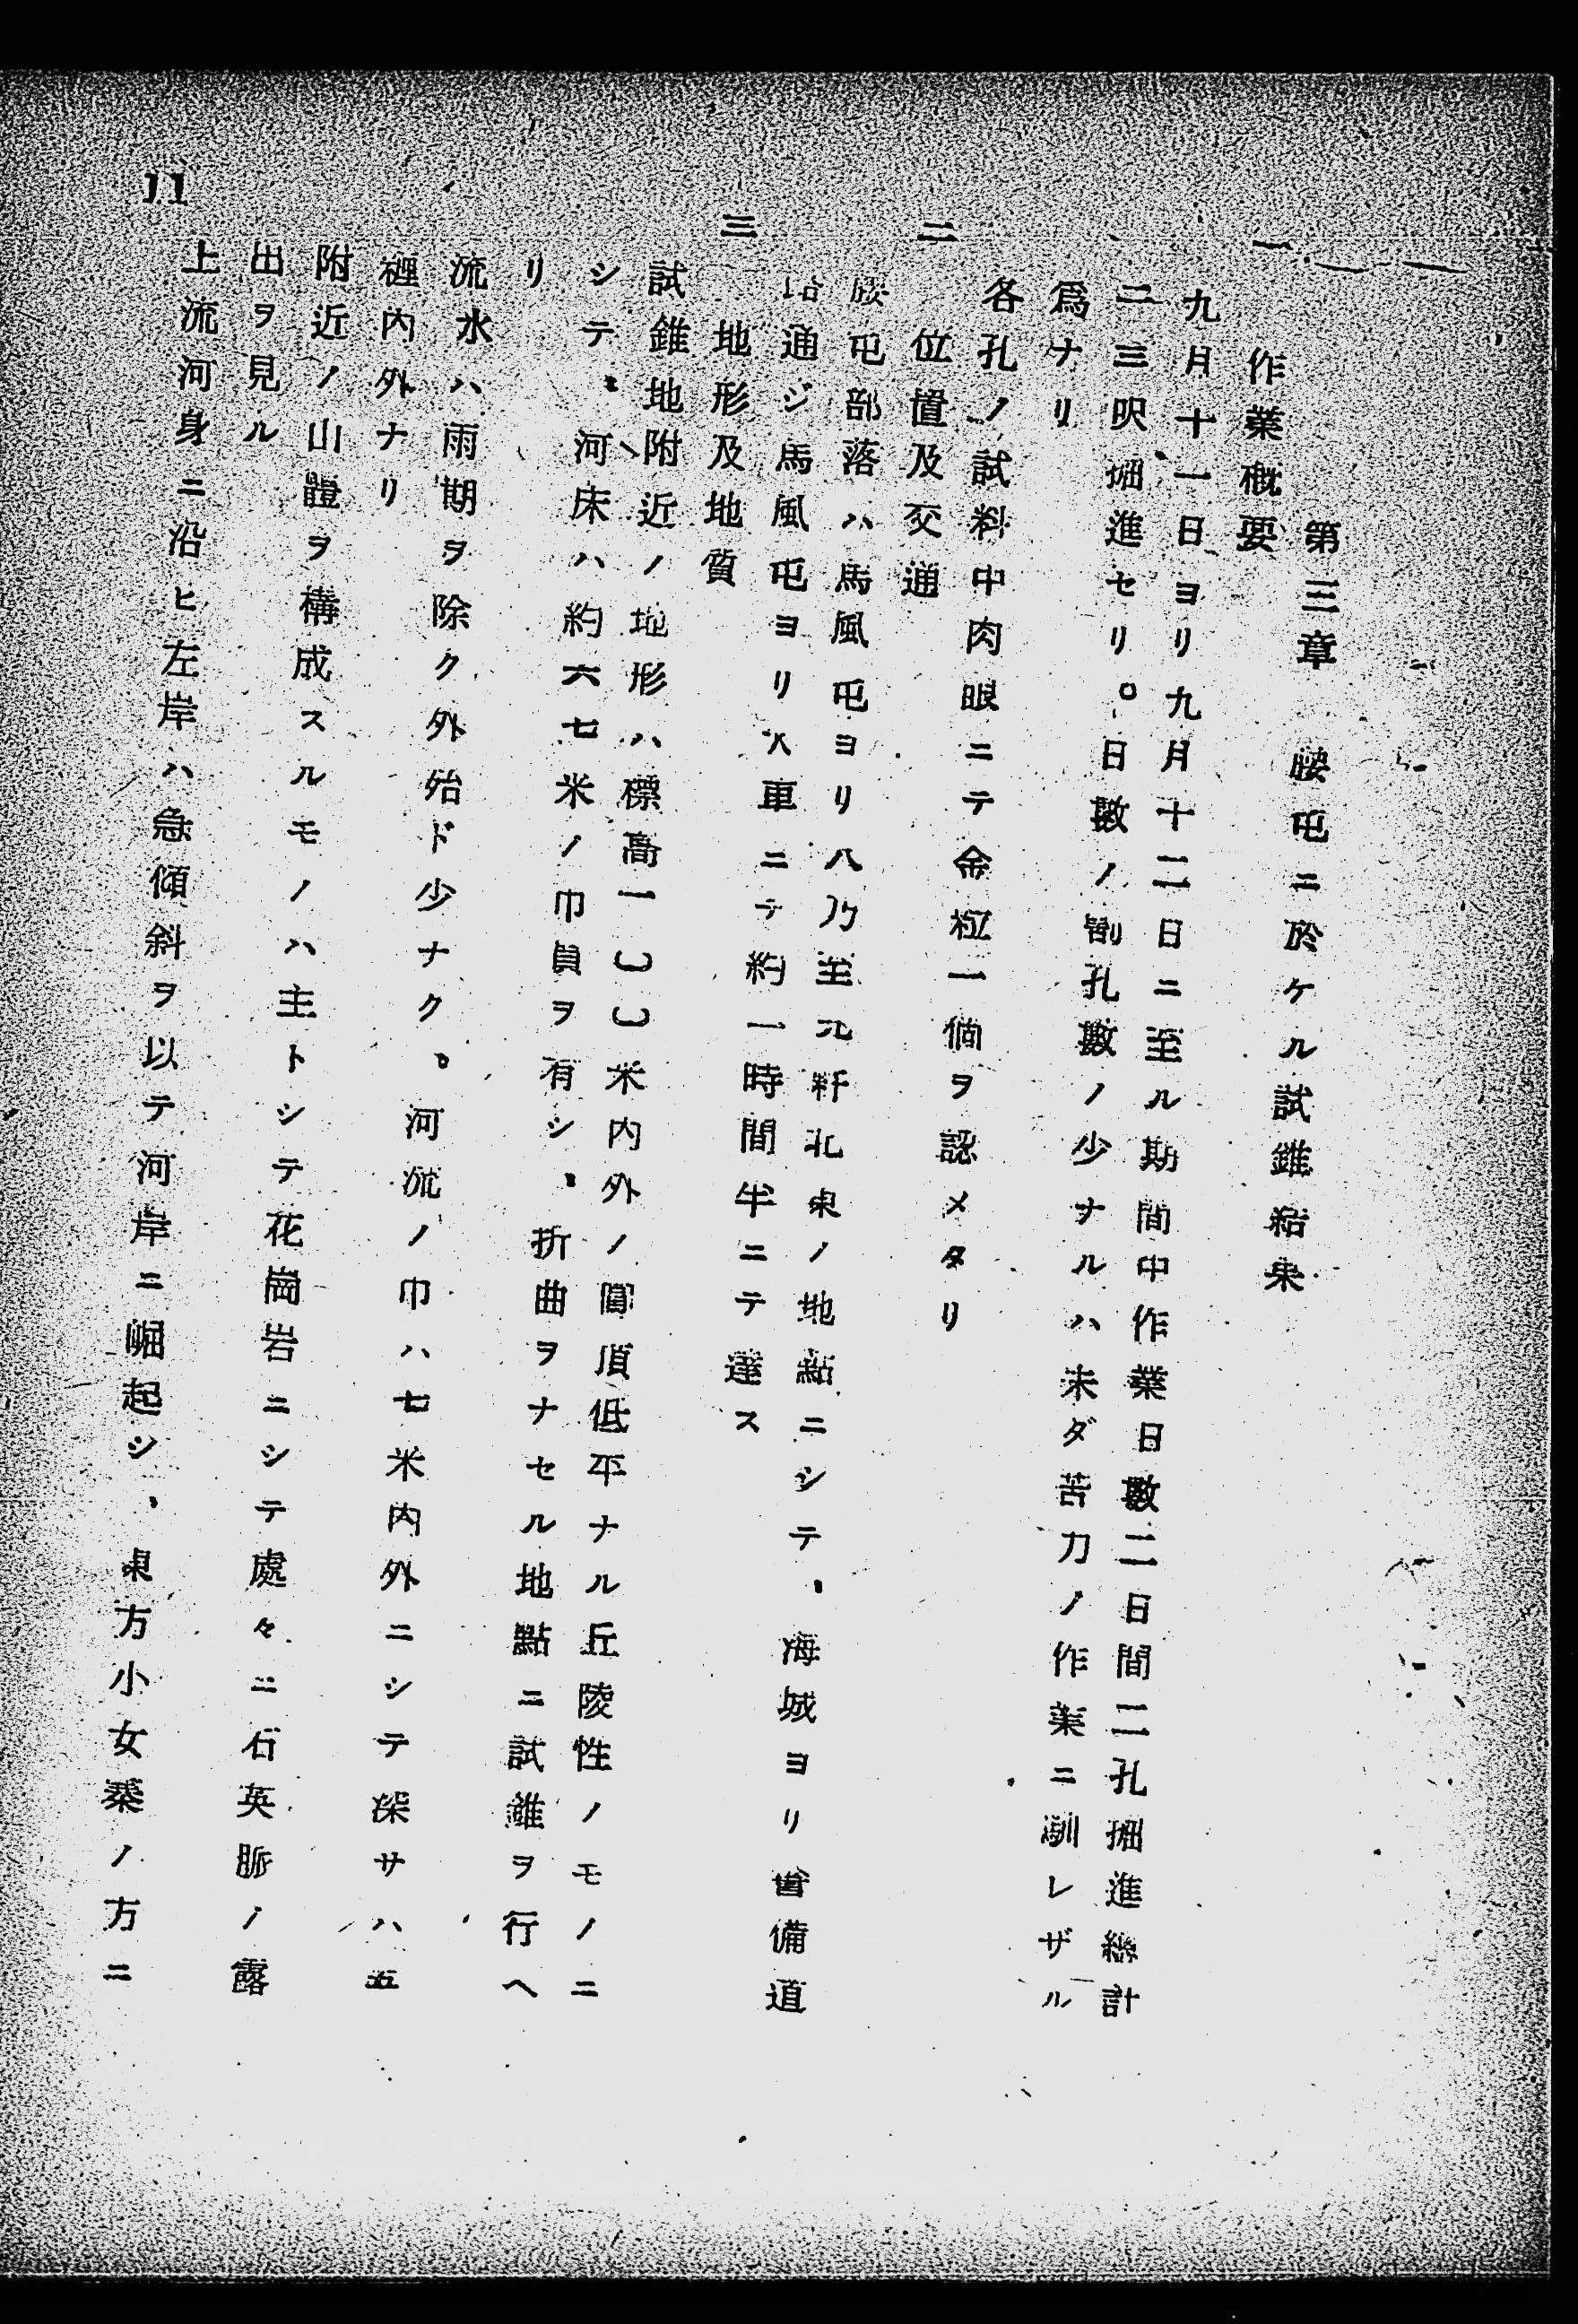 第三章　腰屯ニ於ケル試錐結果
一　作業概要
九月十一日ヨリ九月十二日ニ至ル期間中作業日數二日間二孔掘進總計
二三呎掘進セリ。日數ノ割孔數ノ少ナルハ未ダ苦力ノ作業ニ馴レザル
爲ナリ
各孔ノ試料中肉眼ニテ金粒一個ヲ認メタリ
二　位置及交通
腰屯部落ハ馬風屯ヨリ八乃至九粁北東ノ地點ニシテ、海城ヨリ警備道
路通ジ馬風屯ヨリ人車ニテ約一時間半ニテ達ス
三　地形及地質
試錐地附近ノ地形ハ標高一〇〇米内外ノ圓頂低平ナル丘陵性ノモノニ
シテ、河床ハ約六七米ノ巾員ヲ有シ、折曲ヲナセル地點ニ試錐ヲ行ヘ
リ
流水ハ雨期ヲ除ク外殆ド少ナク、河流ノ巾ハ七米内外ニシテ深サハ五
糎内外ナリ
附近ノ山體ヲ構成スルモノハ主トシテ花崗岩ニシテ處々ニ石英脈ノ露
出ヲ見ル
上流河身ニ沿ヒ左岸ハ急傾斜ヲ以テ河岸ニ崛起シ、東方小女寨ノ方ニ
11